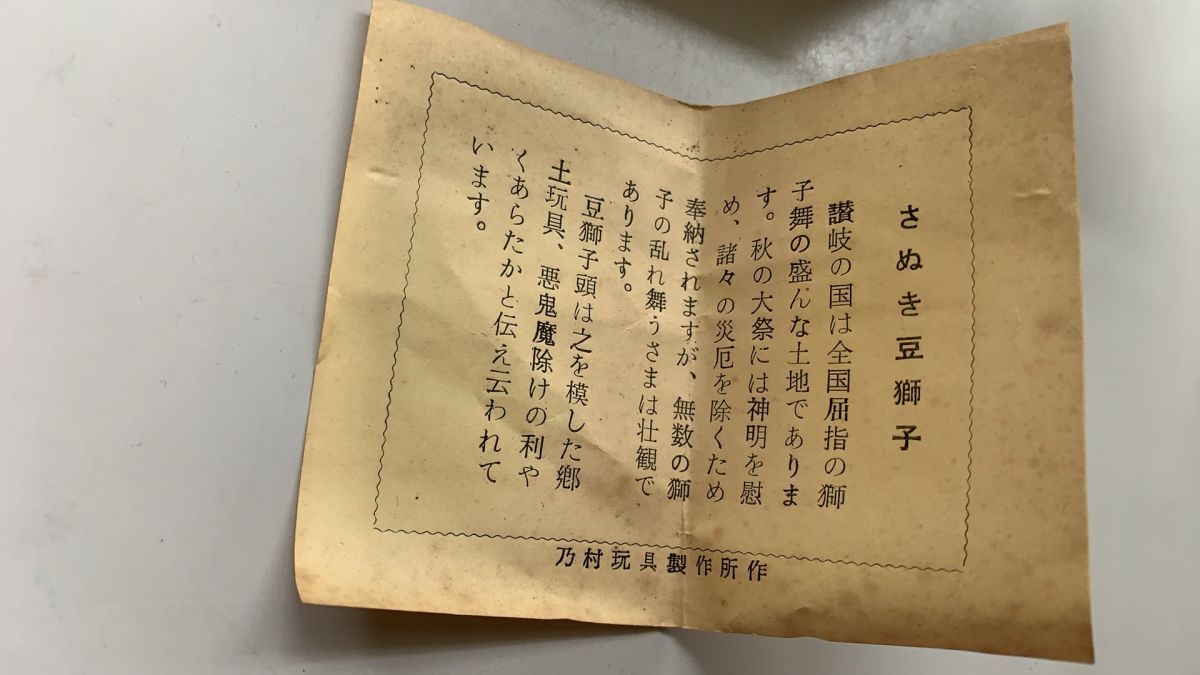 さぬき豆獅子
讃岐の国は全国屈指の獅
子舞の盛んな土地でありま
す。秋の大祭には神明を慰
め、諸々の災厄を除くため
奉納されますが、無数の獅
子の乱れ舞うさまは壮観で
あります。
豆獅子頭は之を模した郷
土玩具、悪鬼魔除けの利や
くあらたかと伝え云われて
います。
乃村玩具製作所作